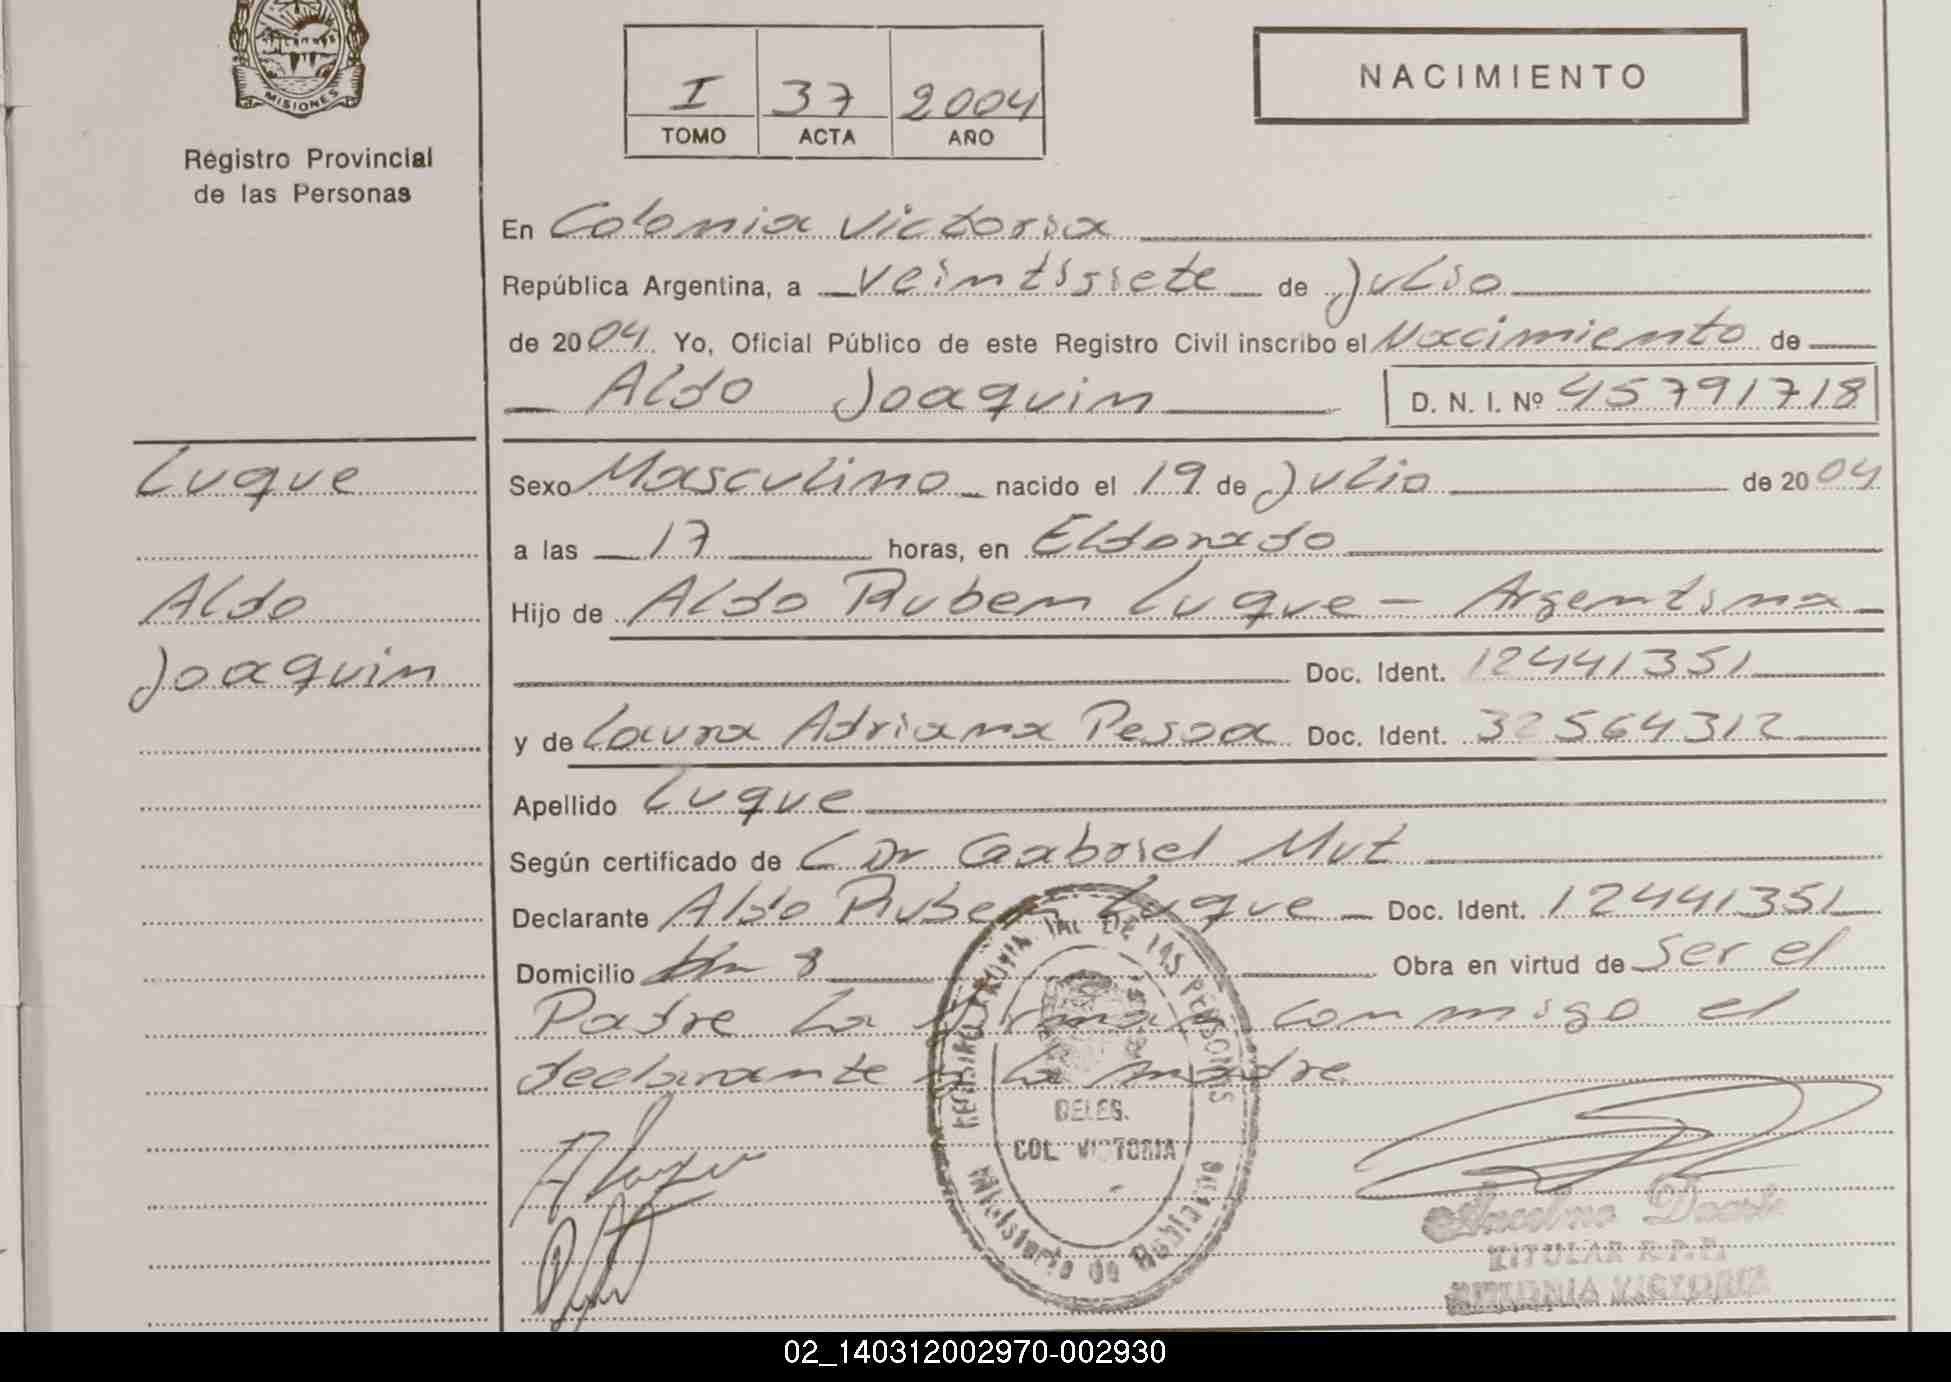 MISIONES
Registro Provincial
de las Personas
I 37 2004
TOMO ACTA AÑO
NACIMIENTO
En Colonia Victoria
República Argentina, a veintisiete de Julio
de 2004. Yo, Oficial Público de este Registro Civil inscribo el Nacimiento de
Aldo Joaquin D. N. I. Nº 45791718
Luque
Aldo
Joaquin
Sexo Masculino nacido el 19 de Julio de 2004
a las 17 horas, en Eldorado
Hijo de Aldo Ruben Luque - Argentina
Doc. Ident. 12441351
y de Laura Adriana Pesoa Doc. Ident. 32564312
Apellido Luque
Según certificado de Dr Gabriel Mut
Declarante Aldo Ruben Luque Doc. Ident. 12441351
Domicilio km 8 Obra en virtud de Ser el
Padre La firman conmigo el
declarante y la madre
A Luque
DELEG.
COL. VICTORIA
Ministerio de Gobierno
TITULAR R.P.P.
COLONIA VICTORIA
02_140312002970-002930